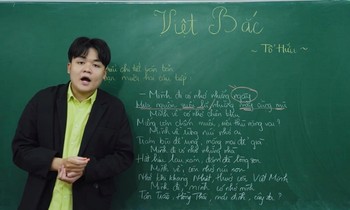 Việt Bắc
~ Tố Hữu ~
- Mình đi có nhớ những ngày
Mưa nguồn suối lũ những mây cùng mù
Mình về có nhớ chiến khu
Miếng cơm chấm muối, mối thù nặng vai?
Mình về rừng núi nhớ ai
Trám bùi để rụng, măng mai để già
Mình đi có nhớ những nhà
Hắt hiu lau xám, đậm đà lòng son
Mình về, còn nhớ núi non
Nhớ khi kháng Nhật, thuở còn Việt Minh
Mình đi, mình có nhớ mình
Tân Trào, Hồng Thái, mái đình, cây đa?